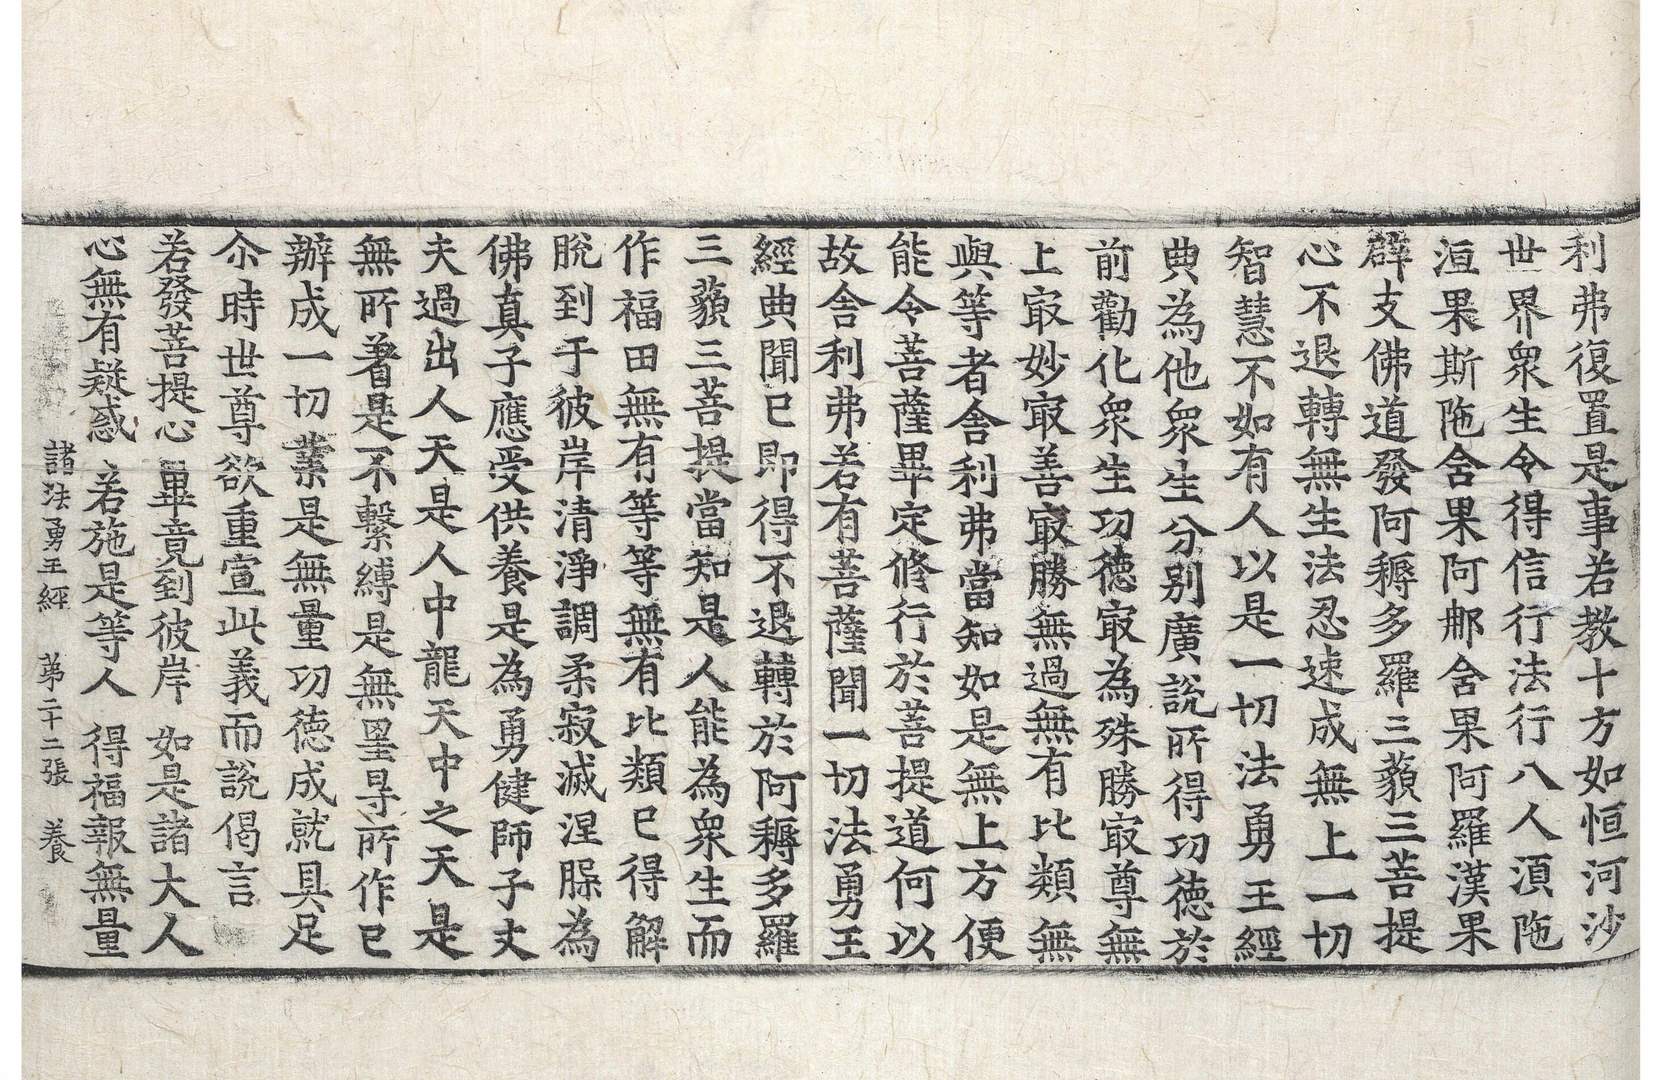 利弗復置是事若教十方如恒河沙
世界衆生令得信行法行八人湏陁
洹果斯陁含果阿䣍含果阿羅漢果
辟支佛道發阿耨多羅三藐三菩提
心不退轉無生法忍速成無上一切
智慧不如有人以是一切法勇王經
典為他衆生分別廣說所得功德於
前勸化衆生功德㝡為殊勝㝡尊無
上㝡妙㝡善㝡勝無過無有比類無
與等者舍利弗當知如是無上方便
能令菩薩畢定修行於菩提道何以
故舍利弗若有菩薩聞一切法勇王
經典聞已即得不退轉於阿耨多羅
三藐三菩提當知是人能為衆生而
作福田無有等等無有比類已得解
脫到于彼岸清淨調柔寂滅涅槃為
佛真子應受供養是為勇健師子丈
夫過出人天是人中龍天中之天是
無所著是不繫縛是無罣㝵所作已
辦成一切業是無量功德成就具足
尒時世尊欲重宣此義而說偈言
若發菩提心 畢竟到彼岸 如是諸大人
心無有疑惑 若施是等人 得福報無量
諸法勇王經 苐二十二張 養